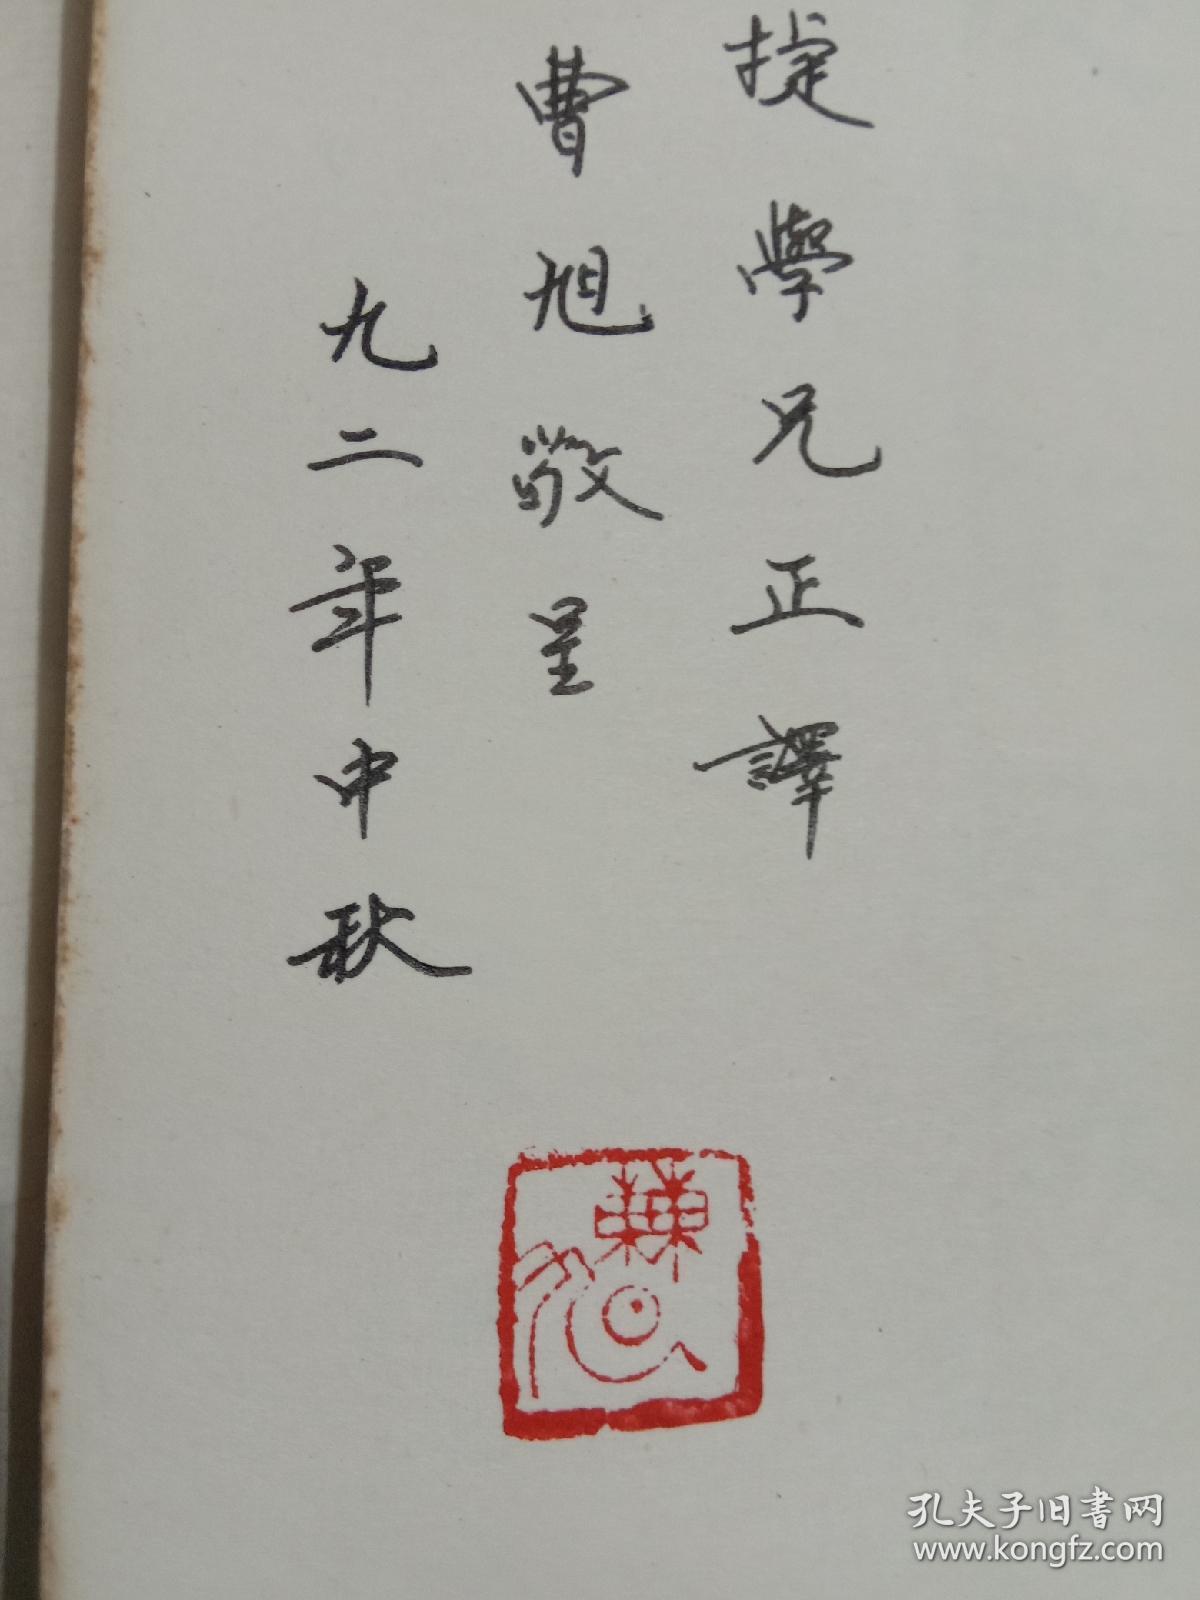 捷學兄正譯
曹旭敬呈
九二年中秋
曹旭
孔夫子旧书网
www.kongfz.com